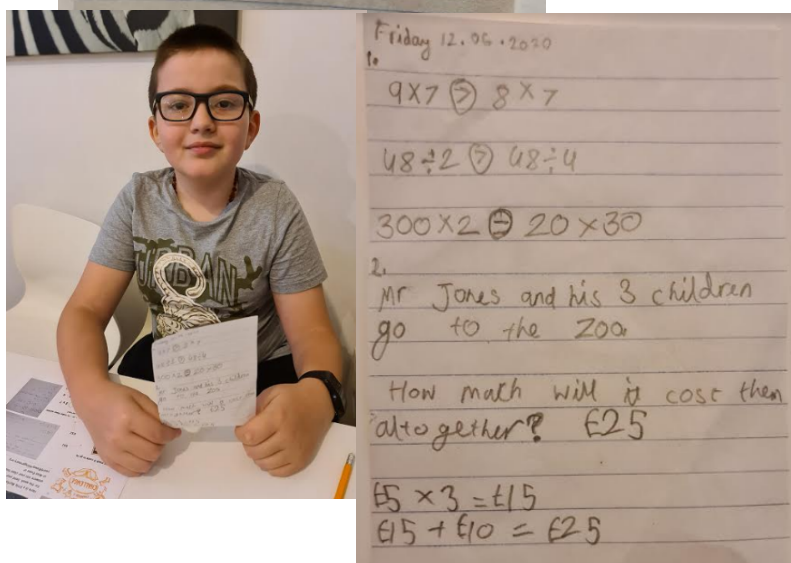 URBAN
Friday 12.06.2020
1.
9×7 > 8×7
48÷2 > 48÷4
300×2 = 20×30
2.
Mr Jones and his 3 children
go to the Zoo.
How math will it cost them
altogether? £25
£5 × 3 = £15
£15 + £10 = £25